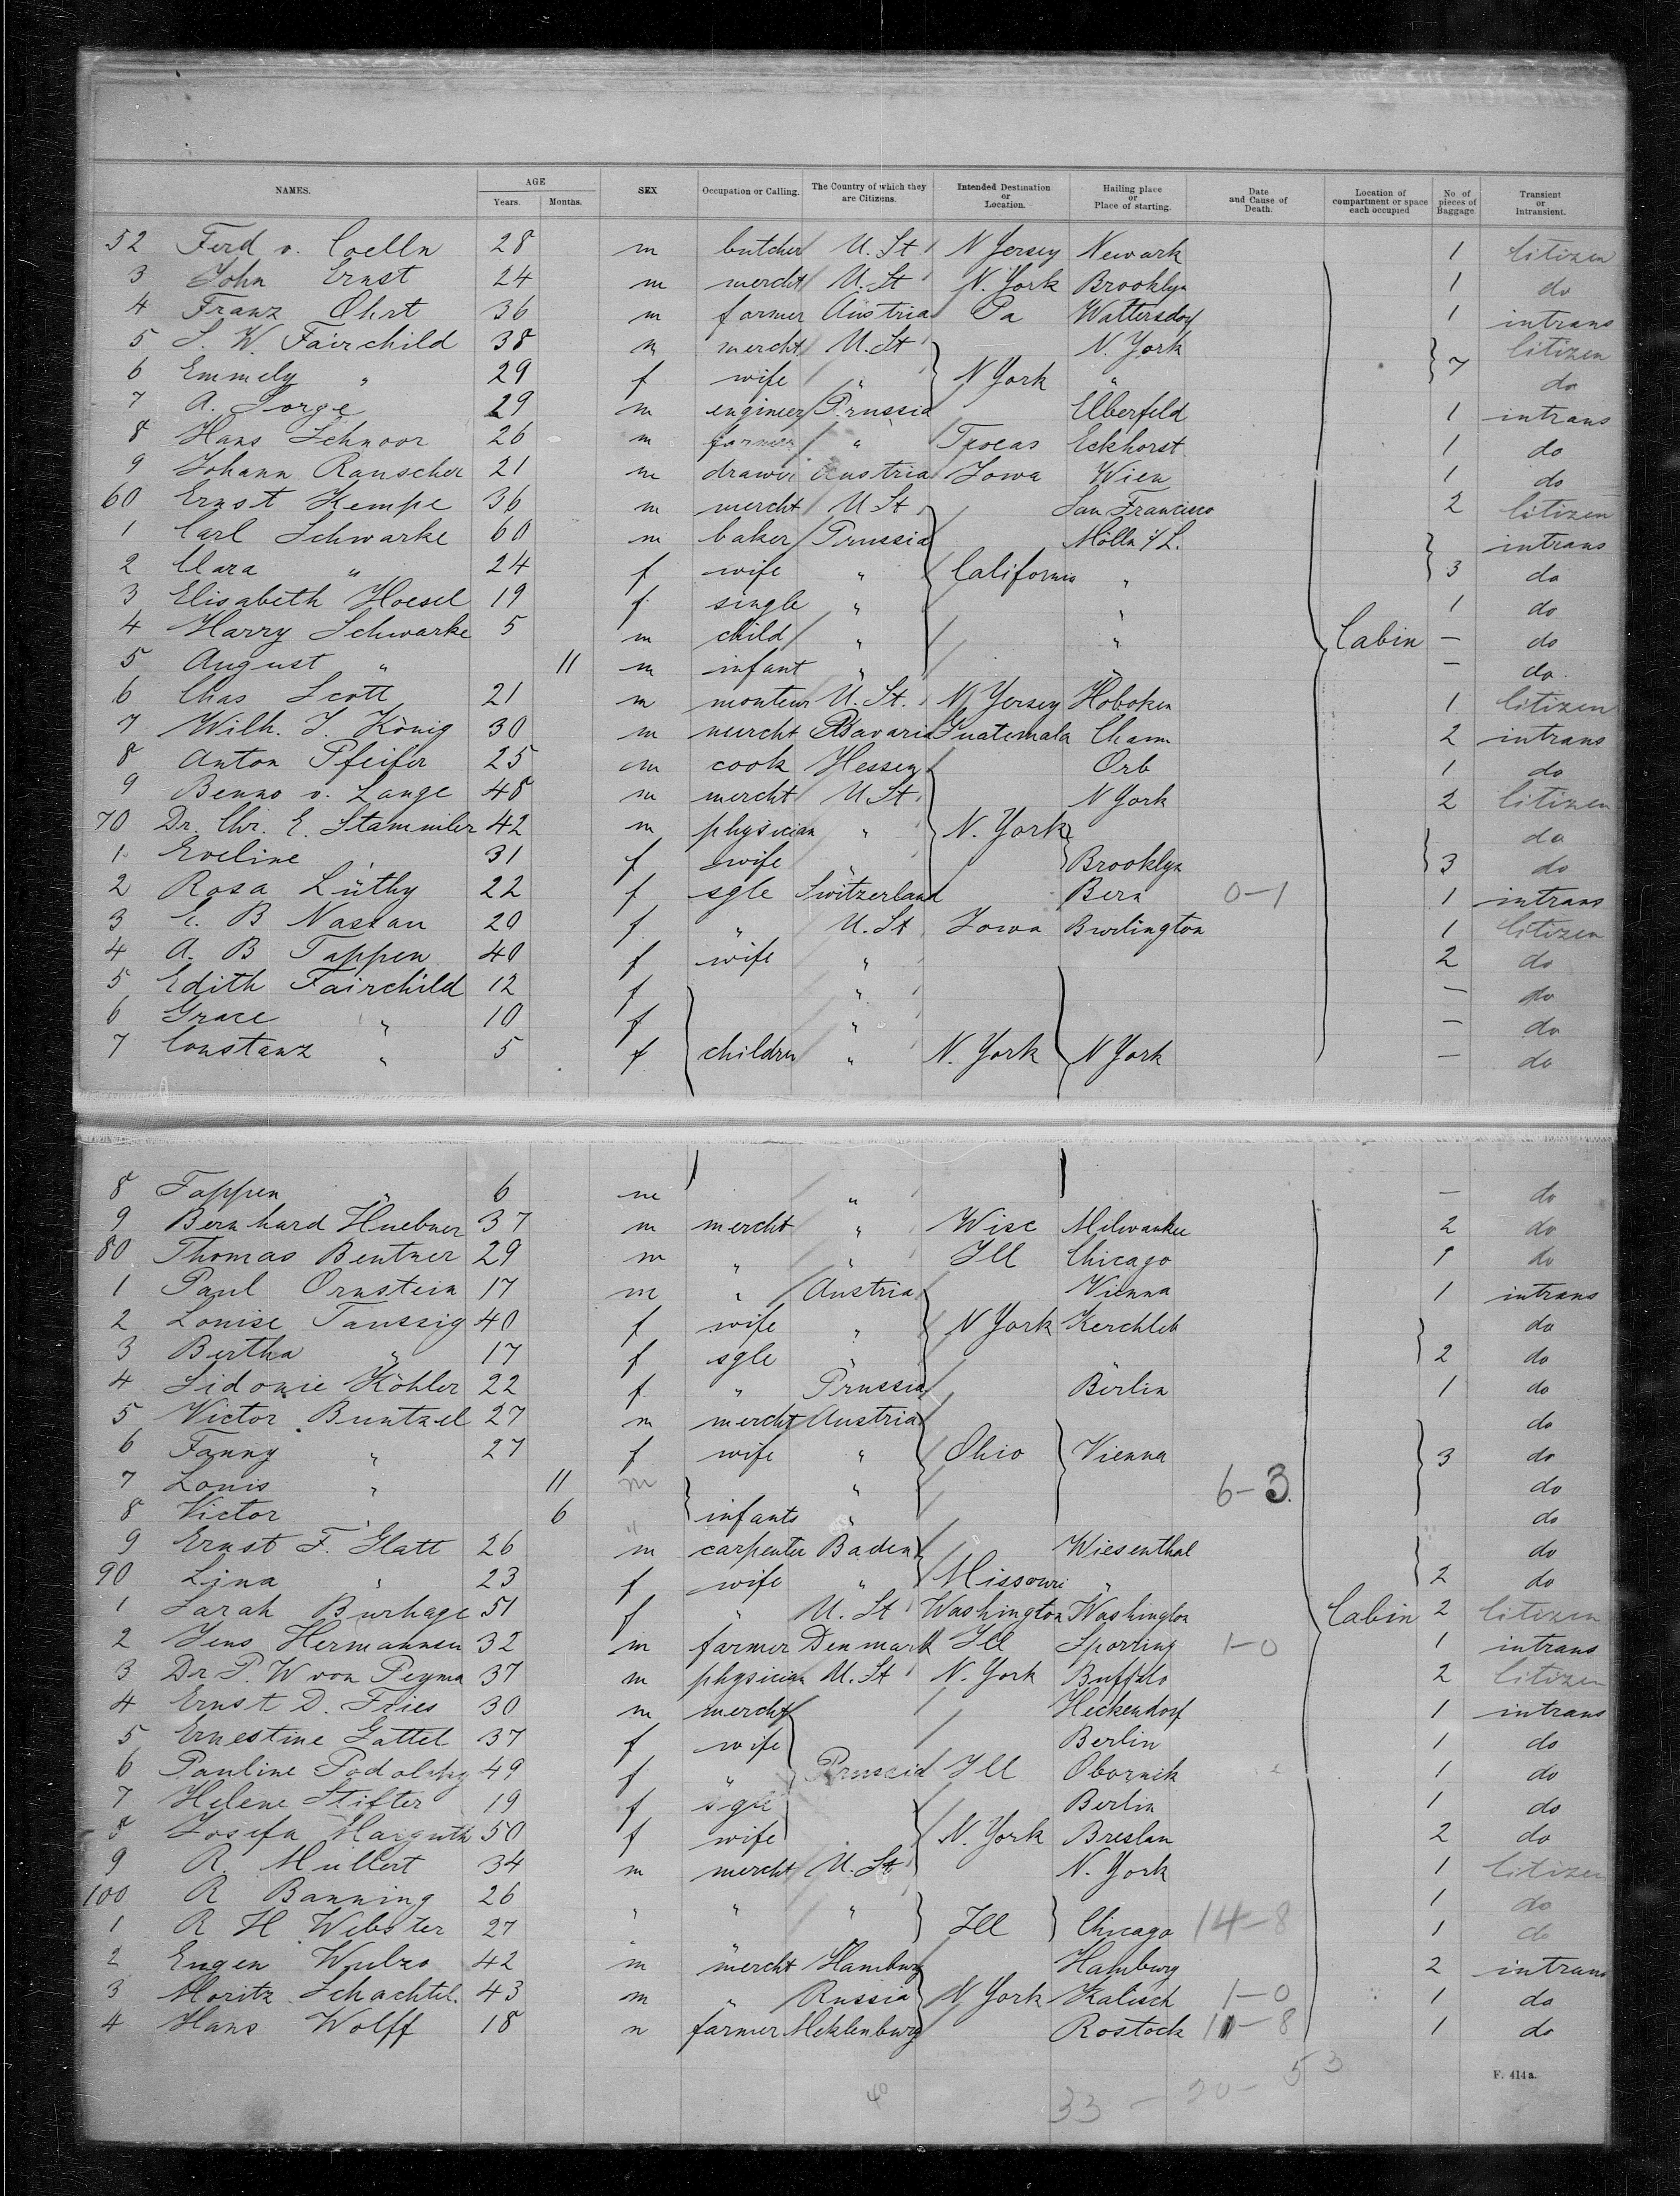 NAMES. AGE Years. Months. SEX Occupation or Calling. The Country of which they are Citizens. Intended Destination or Location. Hailing place or Place of starting. Date and Cause of Death. Location of compartment or space each occupied No. of pieces of Baggage Transient or Intransient.
52 Ferd v. Coelln 28 m butcher U. St N Jersey Newark 1 Citizen
3 John Ernst 24 m mercht U. St N. York Brooklyn 1 do
4 Franz Ohrt 36 m farmer Austria Pa Wattersdorf 1 intrans
5 S. W. Fairchild 38 m mercht U. St N. York Citizen
6 Emmely " 29 f wife " N York " 7 do
7 A. Sorge 29 m engineer Prussia Elberfeld 1 intrans
8 Hans Schnoor 26 m farmer " Eckhorst 1 do
9 Johann Rauscher 21 m drawer Austria Iowa Wien 1 do
60 Ernst Kempe 36 m mercht U St San Francisco 2 Citizen
1 Carl Schwarke 60 m baker Prussia Mölln i/L. intrans
2 Clara " 24 f wife " California " 3 do
3 Elisabeth Hoesel 19 f single " " 1 do
4 Harry Schwarke 5 m child " " Cabin — do
5 August " 11 m infant " " — do
6 Chas Scott 21 m monteur U. St. N Jersey Hoboken 1 Citizen
7 Wilh. J. König 30 m mercht Bavaria Guatemala Cham 2 intrans
8 Anton Pfeifer 25 m cook Hessen Orb 1 do
9 Benno v. Lange 48 m mercht U St N York 2 Citizen
70 Dr. Chr. E. Stammler 42 m physician " N. York do
1 Eveline " 31 f wife " Brooklyn 3 do
2 Rosa Lüthy 22 f sgle Switzerland Bern 0-1 1 intrans
3 E. B Nassau 20 f " U. St Iowa Burlington 1 Citizen
4 A. B Tappen 40 f wife " 2 do
5 Edith Fairchild 12 f " — do
6 Grace " 10 f " — do
7 Constanz " 5 f children " N. York N York — do
8 Tappen " 6 m " — do
9 Bernhard Huebner 37 m mercht " Wisc Milwaukee 2 do
80 Thomas Bentner 29 m " " Ill Chicago 1 do
1 Paul Ornstein 17 m " Austria Vienna 1 intrans
2 Louise Taussig 40 f wife " N York Kerchleb do
3 Bertha " 17 f sgle " " 2 do
4 Sidonie Köhler 22 f " Prussia Berlin 1 do
5 Victor Buntzel 27 m mercht Austria do
6 Fanny " 27 f wife " Ohio Vienna 3 do
7 Louis " 11 m " 6-3. do
8 Victor " 6 " infants " do
9 Ernst F. Glatt 26 m carpenter Baden Wiesenthal do
90 Lina " 23 f wife " Missouri " 2 do
1 Sarah Burhage 51 f " U. St Washington Washington Cabin 2 Citizen
2 Jens Hermannsen 32 m farmer Denmark Ill Sporting 1-0 1 intrans
3 Dr P. W von Peyma 37 m physician U. St N. York Buffalo 2 Citizen
4 Ernst D. Fries 30 m mercht Heckendorf 1 intrans
5 Ernestine Gattel 37 f wife Berlin 1 do
6 Pauline Podolsky 49 f " Prussia Ill Obornik 1 do
7 Helene Stifter 19 f sgle Berlin 1 do
8 Josefa 50 f wife N. York Breslau 2 do
9 R. Müllert 34 m mercht U. St N. York 1 Citizen
100 R Banning 26 " " " 1 do
1 R H Webster 27 Ill Chicago 14-8 1 do
2 Eugen 42 m mercht Hamburg Hamburg 2 intrans
3 Moritz Schachtel. 43 m " Russia N York Kalisch 1-0 1 do
4 Hans Wolff 18 m farmer Meklenburg Rostock 11-8 1 do
33 - 20 - 53
F. 414 a.